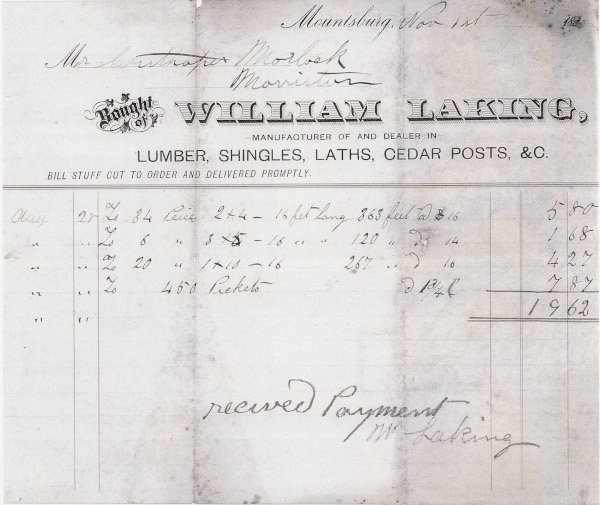 Mountsburg, Nov 1st 188
Mr Morlock
Morriston
Bought of WILLIAM LAKING,
MANUFACTURER OF AND DEALER IN
LUMBER, SHINGLES, LATHS, CEDAR POSTS, &C.
BILL STUFF CUT TO ORDER AND DELIVERED PROMPTLY.
28 To 34 Peice 2x4 - 16 feet long 363 feet @ $16 5 80
" " To 6 " 3 x 5 - 16 " " 120 " @ 14 1 68
" " To 20 " 1x10 - 16 267 " @ 16 4 27
" " To 450 Pickets @ 7 87
" " 19 62
recived Payment
Wm Laking